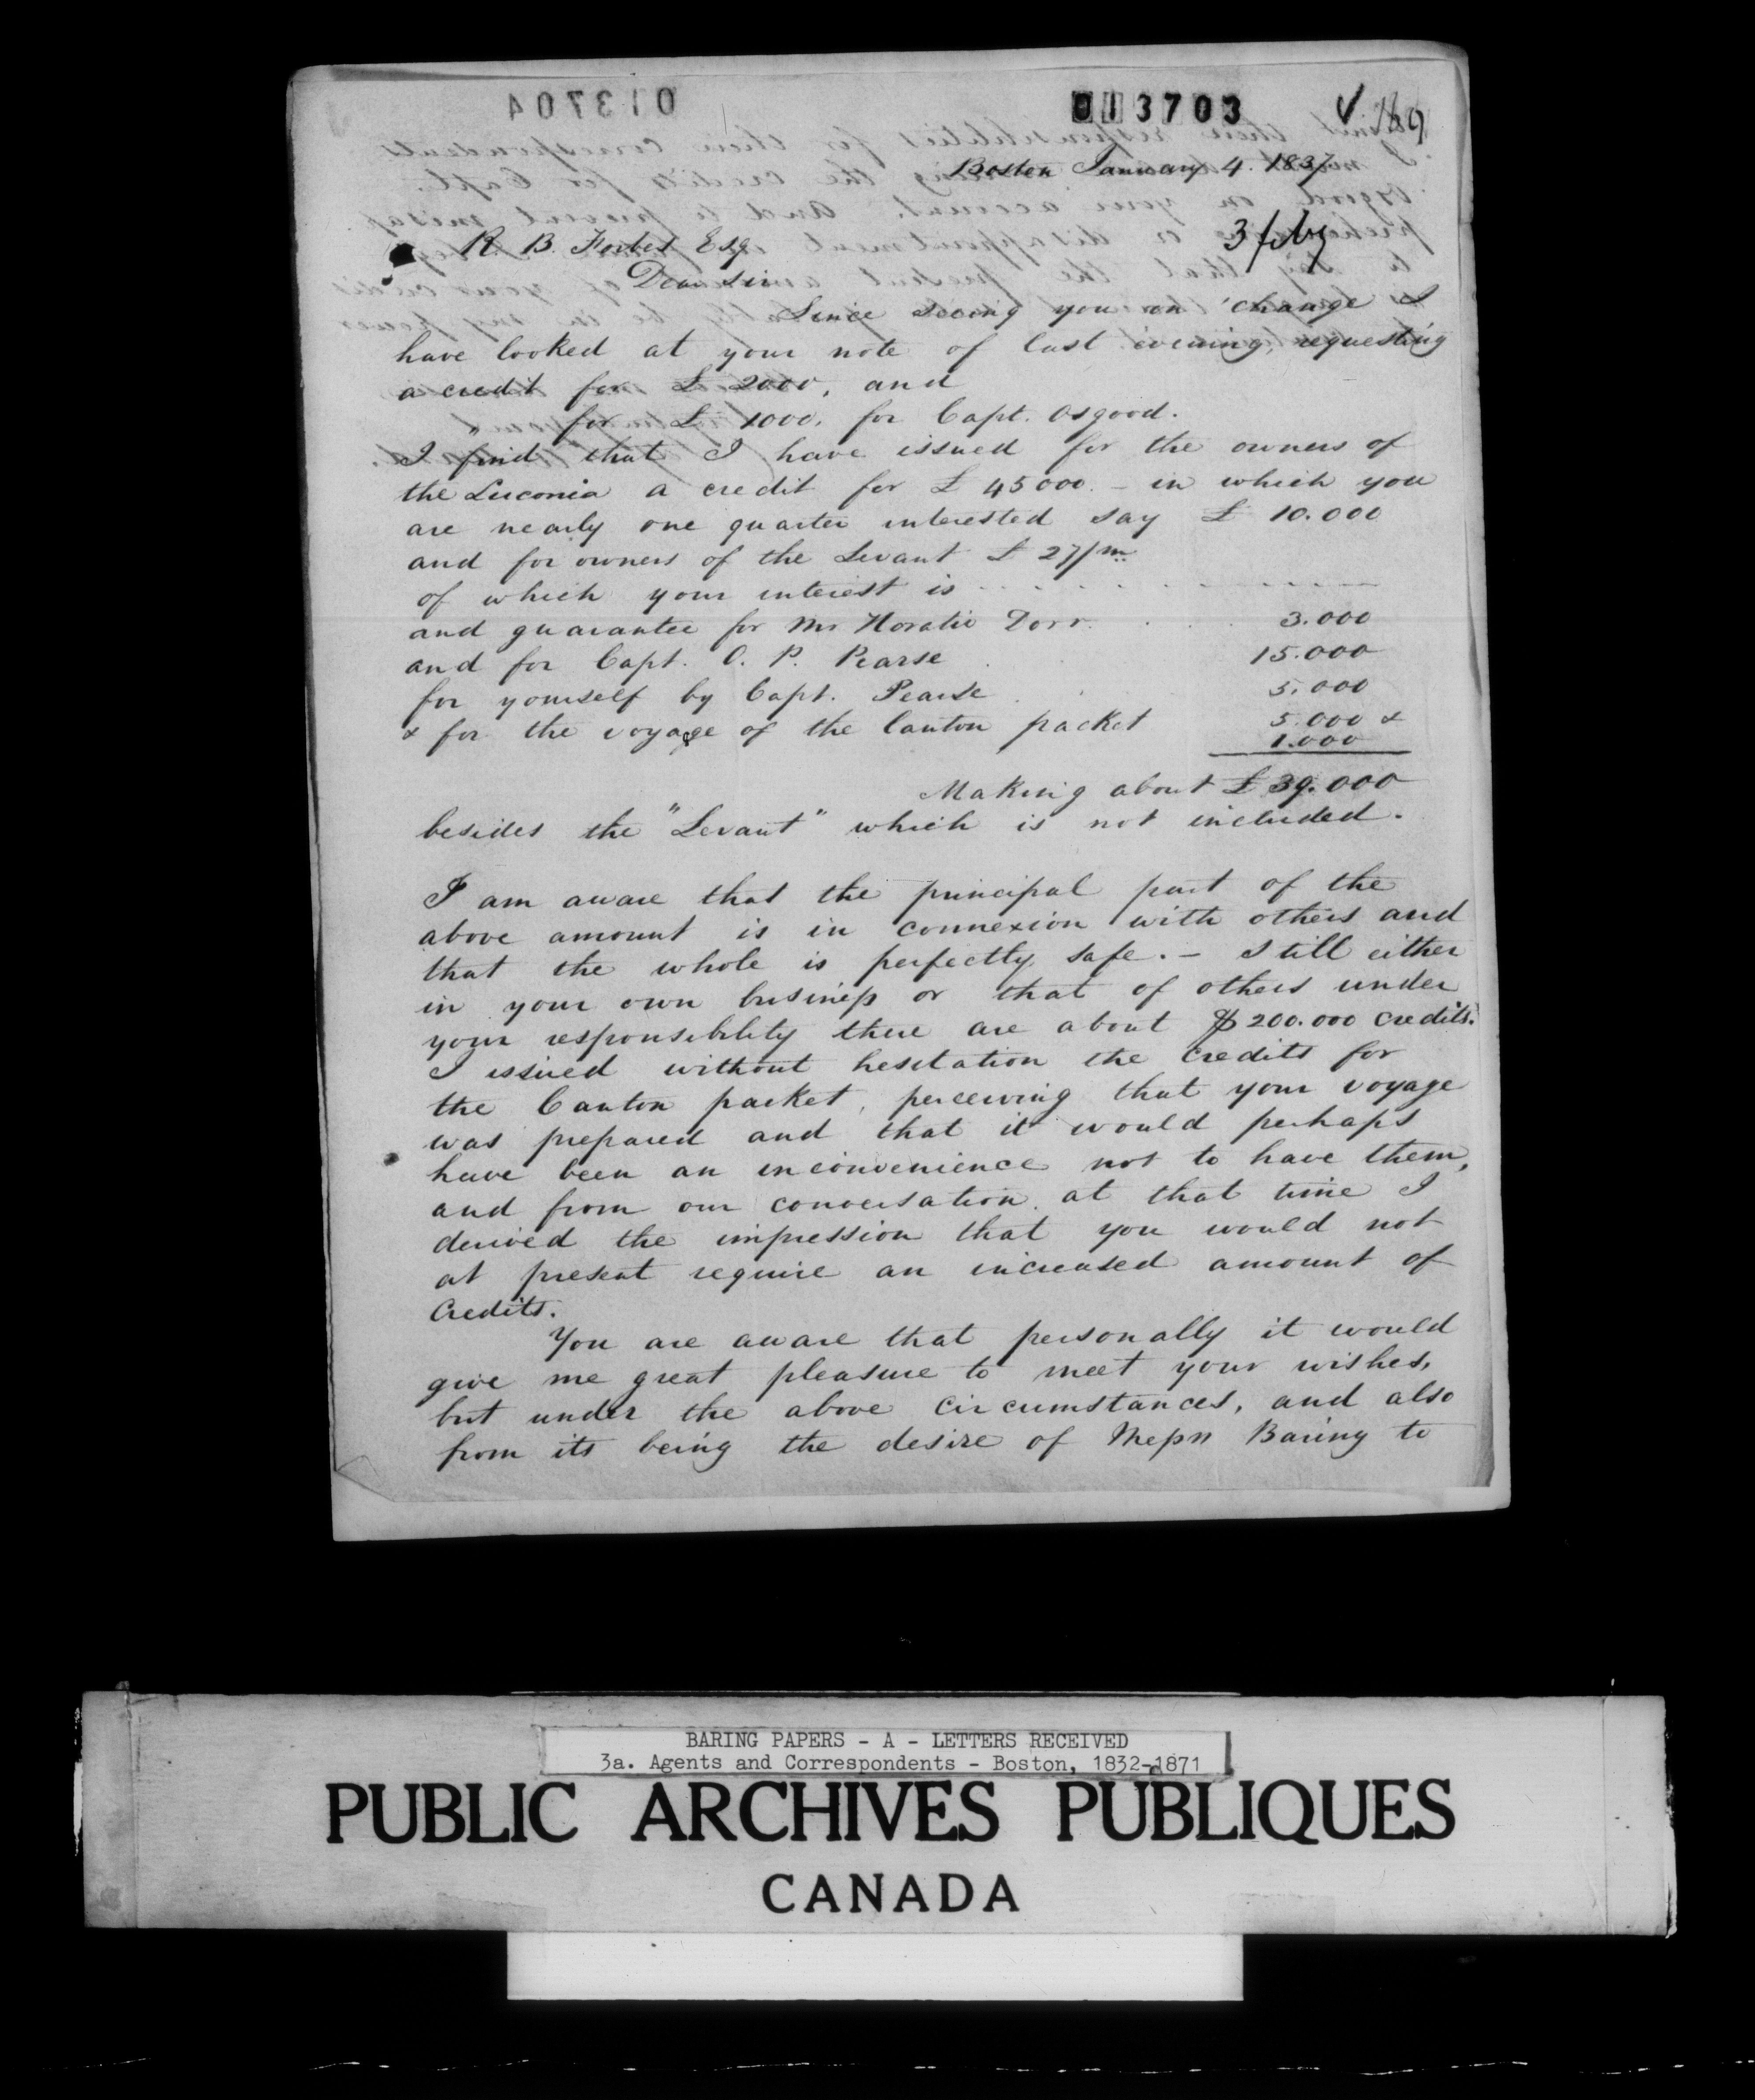 013704
013703
Boston January 4. 1837.
3 feby
R. B. Forbes Esq.
Dear Sir
Since seeing you on 'change I
have looked at your note of last evening, requesting
a credit for £ 2000, and
" for £ 1000. for Capt. Osgood.
I find that I have issued for the owners of
the Luconia a credit for £ 45000. – in which you
are nearly one quarter interested say £ 10.000
and for owners of the Levant £ 27/m
of which your interest is . . . . . . . . — — — —
and guarantee for Mr Horatio Dorr. . . . 3.000
and for Capt. O. P. Pearse . . 15.000
for yourself by Capt. Pearse . . 5.000
& for the voyage of the Canton packet 5.000 &
1.000
Making about £ 39.000
besides the "Levant" which is not included.
I am aware that the principal part of the
above amount is in connexion with others and
that the whole is perfectly safe. – Still either
in your own business or that of others under
your responsibility there are about $ 200.000 credits.
I issued without hesitation the credits for
the Canton packet, perceiving that your voyage
was prepared and that it would perhaps
have been an inconvenience not to have them,
and from our conversation at that time I
derived the impression that you would not
at present require an increased amount of
Credits.
You are aware that personally it would
give me great pleasure to meet your wishes,
but under the above circumstances, and also
from its being the desire of Messrs Baring to
BARING PAPERS - A - LETTERS RECEIVED
3a. Agents and Correspondents - Boston, 1832-1871
PUBLIC ARCHIVES PUBLIQUES
CANADA